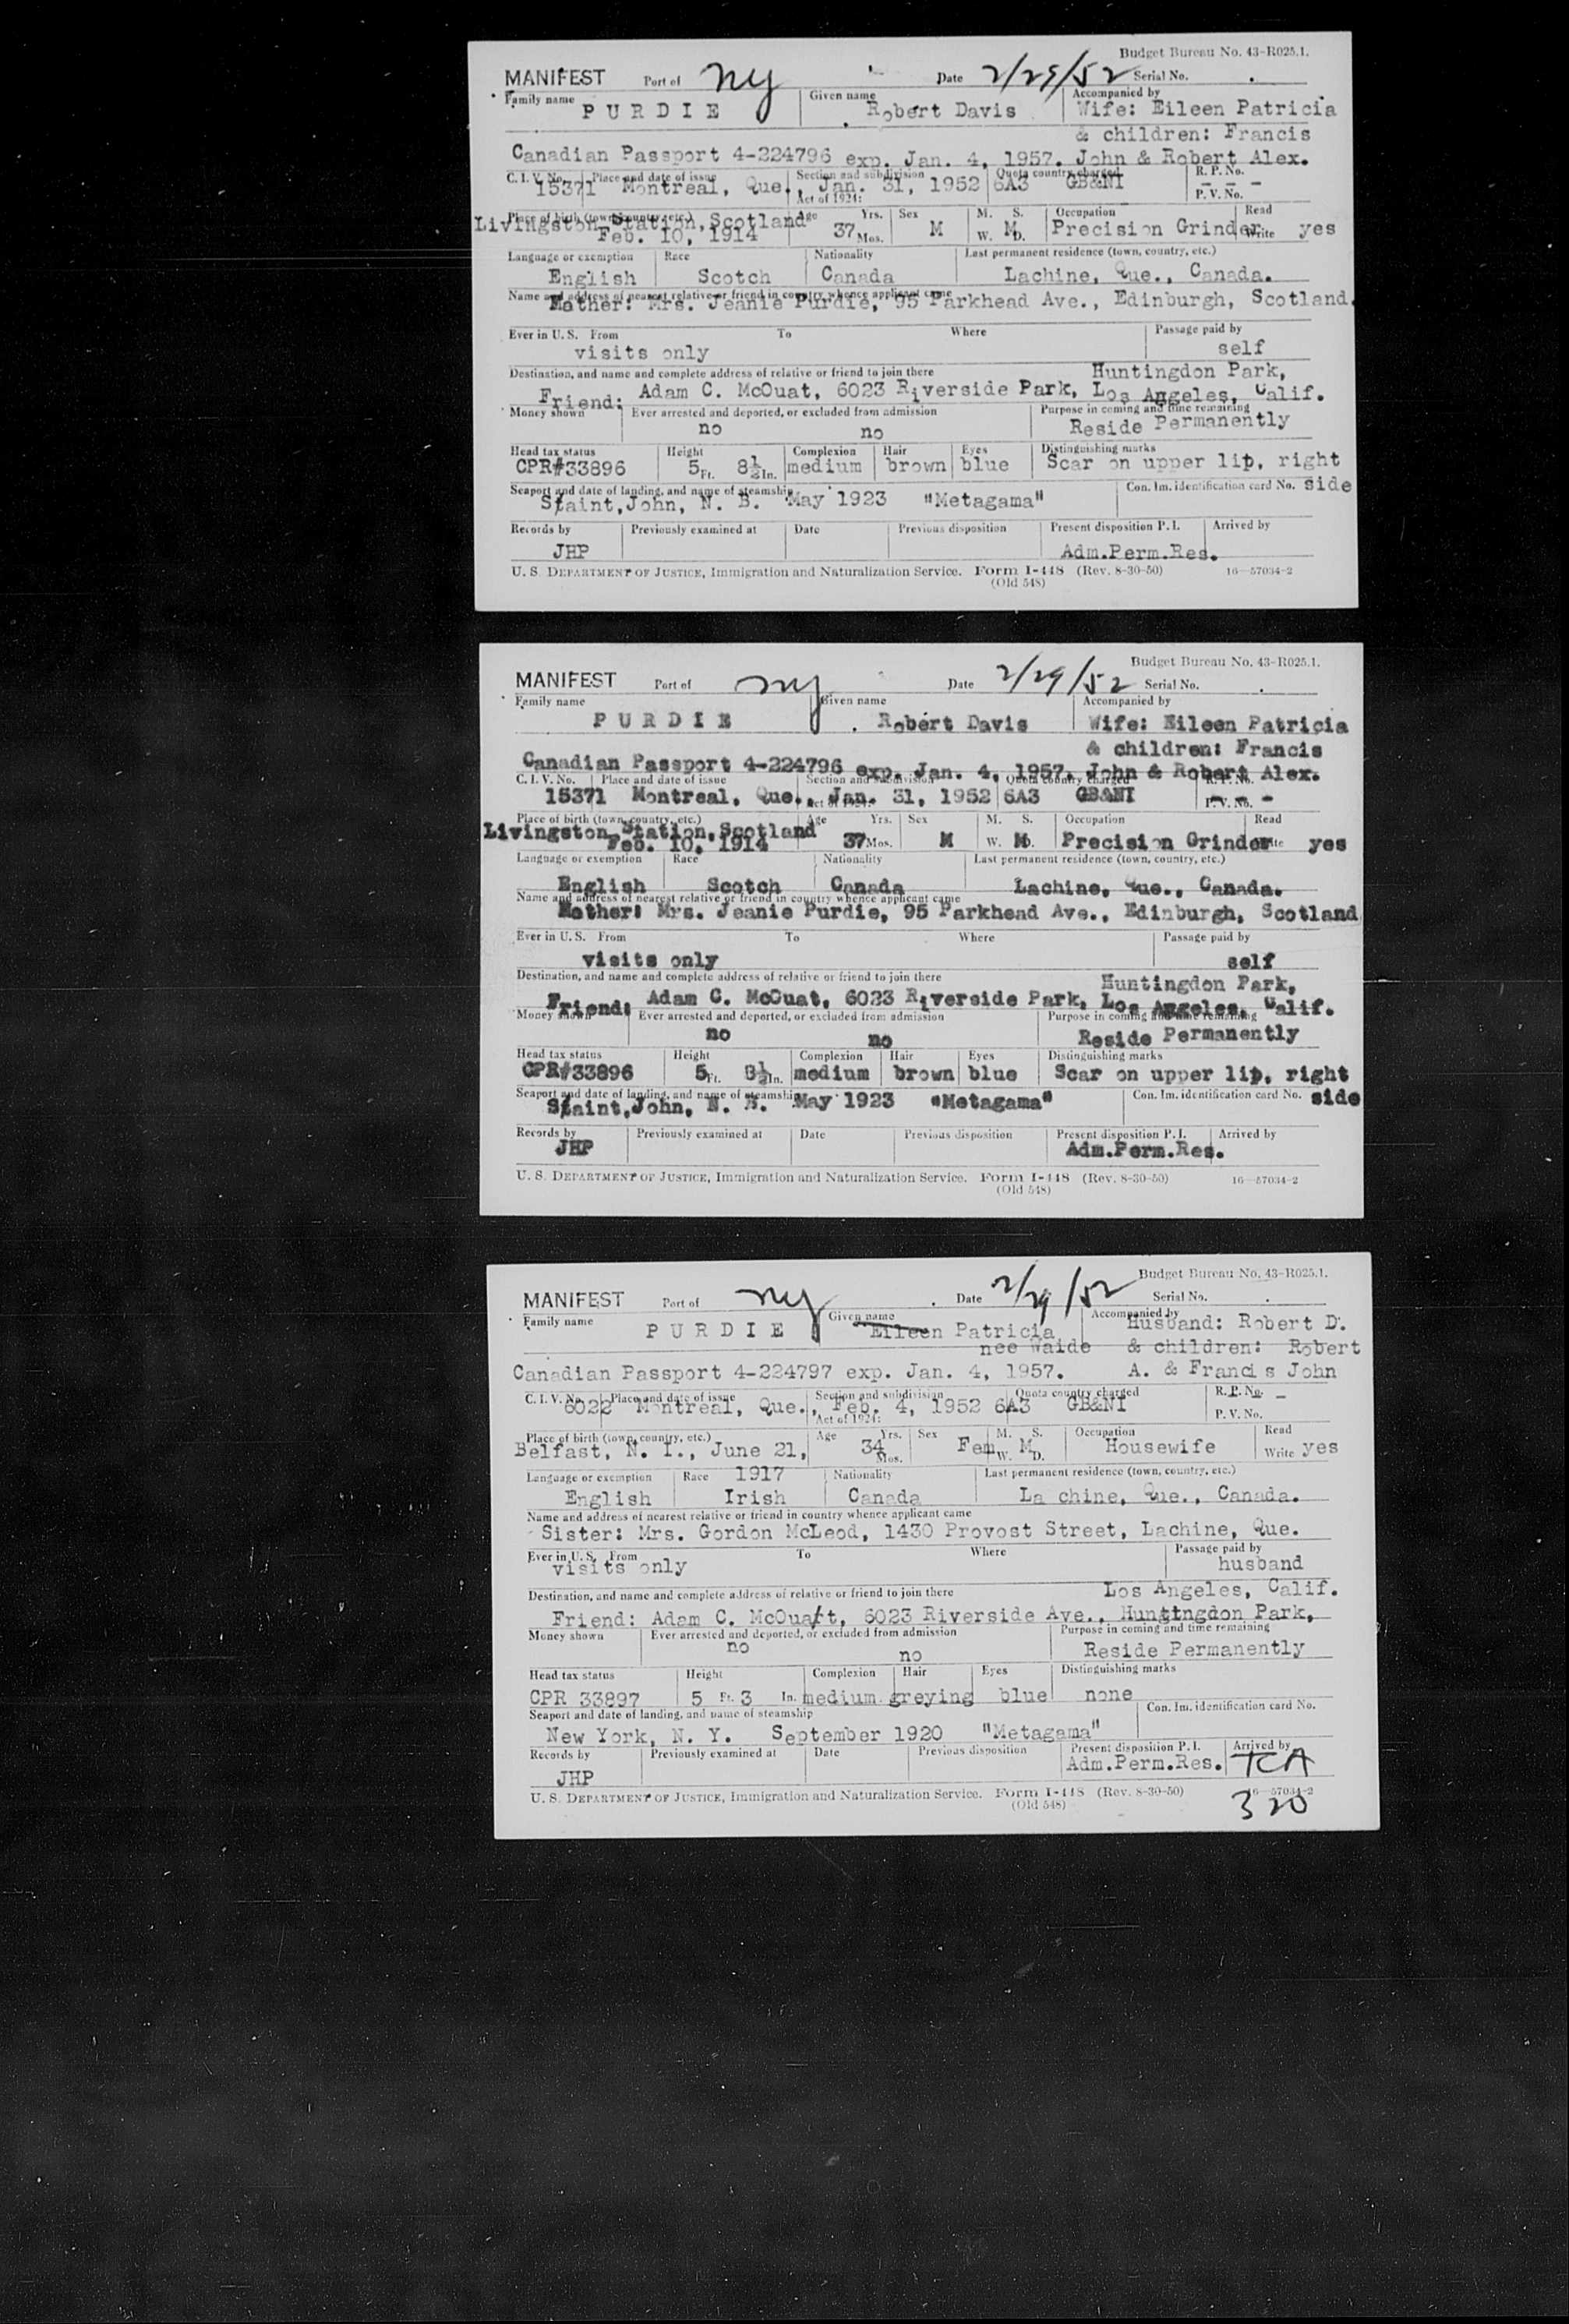 Budget Bureau No. 43-R025.1.
MANIFEST Port of NY Date 2/29/52 Serial No.
Family name PURDIE Given name Robert Davis Accompanied by Wife: Eileen Patricia
& children: Francis
Canadian Passport 4-224796 exp. Jan. 4, 1957. John & Robert Alex.
C. I. V. No. Place and date of issue Section and subdivision Quota country charged R. P. No.
15371 Montreal, Que., Jan. 31, 1952 6A3 GB&NI - - -
Act of 1924: P. V. No.
Place of birth (town, country, etc.) Age Yrs. Sex M. S. Occupation Read
Livingston Station, Scotland 37 Mos. M W. M D. Precision Grinder Write yes
Feb. 10, 1914
Language or exemption Race Nationality Last permanent residence (town, country, etc.)
English Scotch Canada Lachine, Que., Canada.
Name and address of nearest relative or friend in country whence applicant came
Mother: Mrs. Jeanie Purdie, 95 Parkhead Ave., Edinburgh, Scotland.
Ever in U. S. From To Where Passage paid by
visits only self
Destination, and name and complete address of relative or friend to join there Huntingdon Park,
Friend: Adam C. McOuat, 6023 Riverside Park, Los Angeles, Calif.
Money shown Ever arrested and deported, or excluded from admission Purpose in coming and time remaining
no no Reside Permanently
Head tax status Height Complexion Hair Eyes Distinguishing marks
CPR#33896 5 Ft. 8½ In. medium brown blue Scar on upper lip, right
Seaport and date of landing, and name of steamship Con. Im. identification card No. side
Saint, John, N. B. May 1923 "Metagama"
Records by Previously examined at Date Previous disposition Present disposition P. I. Arrived by
JHP Adm.Perm.Res.
U. S. DEPARTMENT OF JUSTICE, Immigration and Naturalization Service. Form I-448 (Rev. 8-30-50) 16—57034-2
(Old 548)
Budget Bureau No. 43-R025.1.
MANIFEST Port of NY Date 2/29/52 Serial No.
Family name Given name Accompanied by
PURDIE Robert Davis Wife: Eileen Patricia
& children: Francis
Canadian Passport 4-224796 exp. Jan. 4, 1957. John & Robert Alex.
C. I. V. No. Place and date of issue Section and subdivision Quota country charged R. P. No.
15371 Montreal, Que., Jan. 31, 1952 6A3 GB&NI - - -
Act of 1924: P. V. No.
Place of birth (town, country, etc.) Age Yrs. Sex M. S. Occupation Read
Livingston Station, Scotland 37 Mos. M W. M D. Precision Grinder Write yes
Feb. 10, 1914
Language or exemption Race Nationality Last permanent residence (town, country, etc.)
English Scotch Canada Lachine, Que., Canada.
Name and address of nearest relative or friend in country whence applicant came
Mother: Mrs. Jeanie Purdie, 95 Parkhead Ave., Edinburgh, Scotland
Ever in U. S. From To Where Passage paid by
visits only self
Destination, and name and complete address of relative or friend to join there Huntingdon Park,
Friend: Adam C. McOuat, 6023 Riverside Park, Los Angeles, Calif.
Money shown Ever arrested and deported, or excluded from admission Purpose in coming and time remaining
no no Reside Permanently
Head tax status Height Complexion Hair Eyes Distinguishing marks
CPR#33896 5 Ft. 8½ In. medium brown blue Scar on upper lip, right
Seaport and date of landing, and name of steamship Con. Im. identification card No. side
Saint, John, N. B. May 1923 "Metagama"
Records by Previously examined at Date Previous disposition Present disposition P. I. Arrived by
JHP Adm.Perm.Res.
U. S. DEPARTMENT OF JUSTICE, Immigration and Naturalization Service. Form I-448 (Rev. 8-30-50) 16—57034-2
(Old 548)
Budget Bureau No. 43-R025.1.
MANIFEST Port of NY Date 2/29/52 Serial No.
Family name Given name Accompanied by
PURDIE Eileen Patricia Husband: Robert D.
nee Waide & children: Robert
Canadian Passport 4-224797 exp. Jan. 4, 1957. A. & Francis John
C. I. V. No. Place and date of issue Section and subdivision Quota country charged R. P. No. -
6022 Montreal, Que., Feb. 4, 1952 6A3 GB&NI
Act of 1924: P. V. No.
Place of birth (town, country, etc.) Age Yrs. Sex M. S. Occupation Read
Belfast, N. I., June 21, 34 Mos. Fem W. M D. Housewife Write yes
Language or exemption Race 1917 Nationality Last permanent residence (town, country, etc.)
English Irish Canada La chine, Que., Canada.
Name and address of nearest relative or friend in country whence applicant came
Sister: Mrs. Gordon McLeod, 1430 Provost Street, Lachine, Que.
Ever in U. S. From To Where Passage paid by
visits only husband
Destination, and name and complete address of relative or friend to join there Los Angeles, Calif.
Friend: Adam C. McOuat, 6023 Riverside Ave., Huntingdon Park,
Money shown Ever arrested and deported, or excluded from admission Purpose in coming and time remaining
no no Reside Permanently
Head tax status Height Complexion Hair Eyes Distinguishing marks
CPR 33897 5 Ft. 3 In. medium greying blue none
Seaport and date of landing, and name of steamship Con. Im. identification card No.
New York, N. Y. September 1920 "Metagama"
Records by Previously examined at Date Previous disposition Present disposition P. I. Arrived by
JHP Adm.Perm.Res. TCA
U. S. DEPARTMENT OF JUSTICE, Immigration and Naturalization Service. Form I-448 (Rev. 8-30-50) 16—57034-2
(Old 548) 320